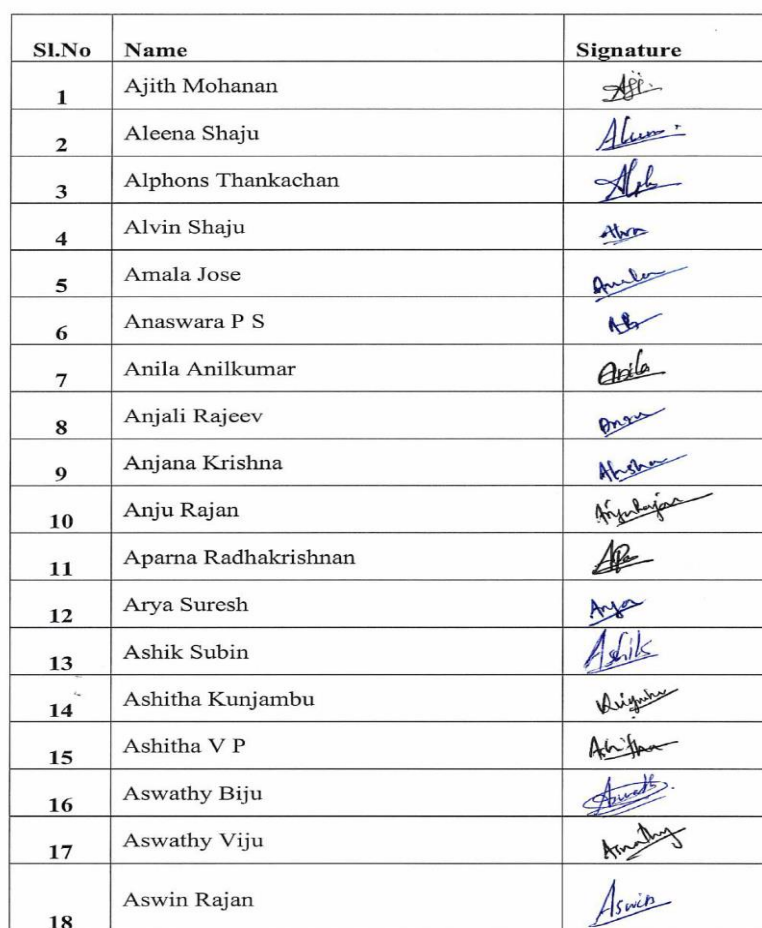 Sl.No Name Signature
1 Ajith Mohanan
2 Aleena Shaju
3 Alphons Thankachan Alph
4 Alvin Shaju
5 Amala Jose
6 Anaswara P S
7 Anila Anilkumar Anila
8 Anjali Rajeev
9 Anjana Krishna
10 Anju Rajan Anju Rajan
11 Aparna Radhakrishnan
12 Arya Suresh Arya
13 Ashik Subin Ashik
14 Ashitha Kunjambu
15 Ashitha V P Ashitha
16 Aswathy Biju
17 Aswathy Viju Aswathy
18 Aswin Rajan Aswin